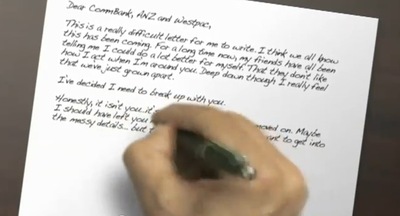 Dear CommBank, ANZ and Westpac,
This is a really difficult letter for me to write. I think we all know
this has been coming. For a long time now, my friends have all been
telling me I could do a lot better for myself. That they don't like
how I act when I'm around you. Deep down though I really feel
that we've just grown apart.
I've decided I need to break up with you.
Honestly, it isn't you, it's moved on. Maybe
I should have left you want to get into
the messy details... but